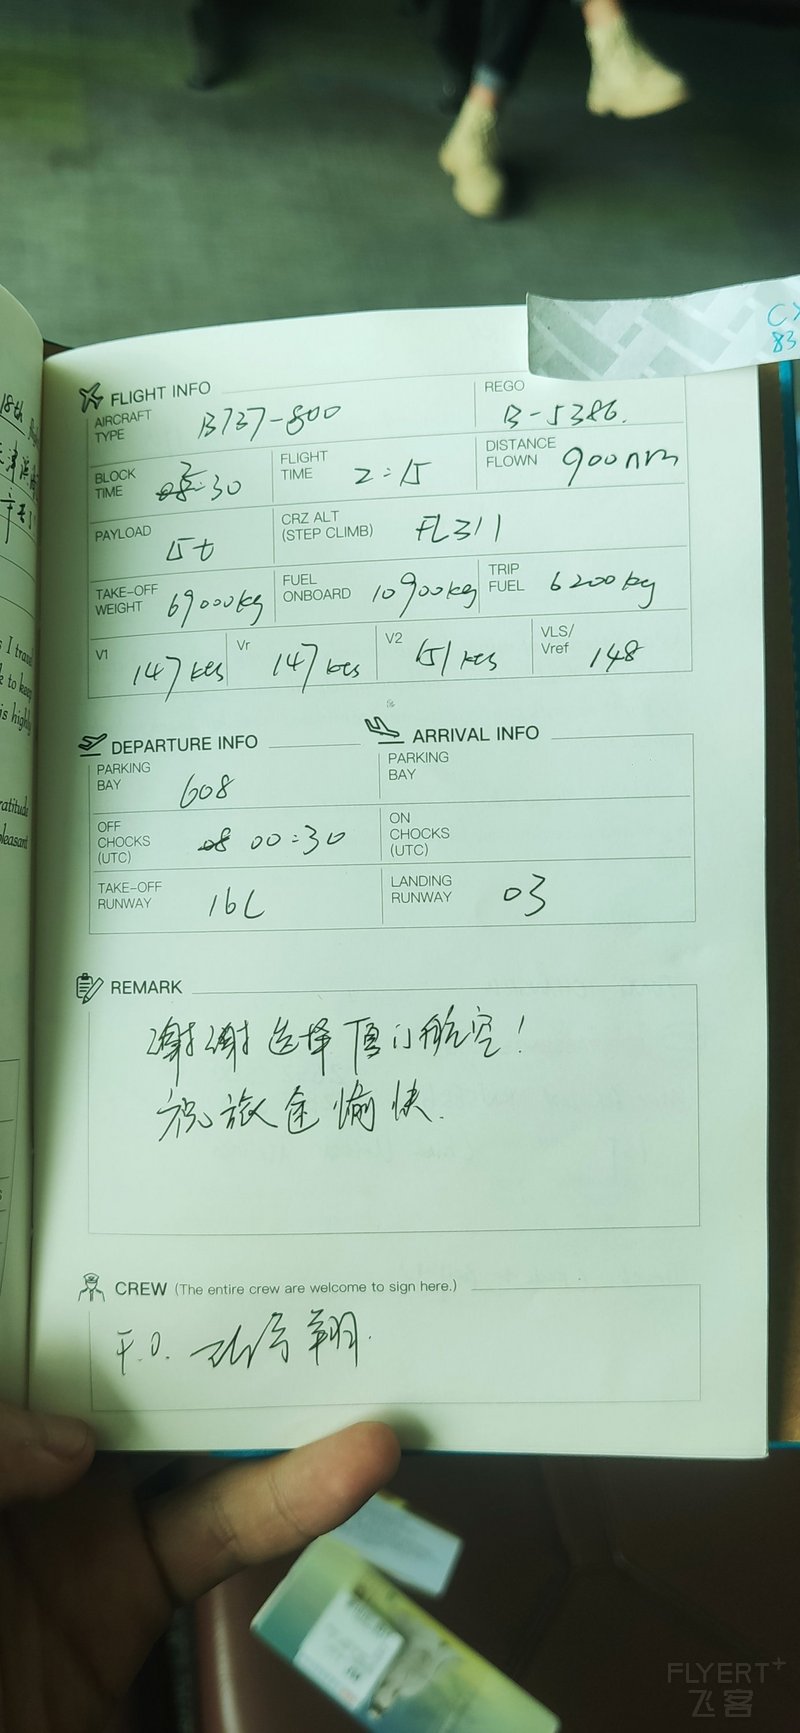 CX
83
18th
FLIGHT INFO
AIRCRAFT TYPE B737-800
REGO B-5386.
BLOCK TIME 2:30
FLIGHT TIME 2:15
DISTANCE FLOWN 900nm
PAYLOAD 15t
CRZ ALT (STEP CLIMB) FL311
TAKE-OFF WEIGHT 69000kg
FUEL ONBOARD 10900kg
TRIP FUEL 6200kg
V1 147kts
Vr 147kts
V2 151kts
VLS/ Vref 148
DEPARTURE INFO
ARRIVAL INFO
PARKING BAY 608
PARKING BAY
OFF CHOCKS (UTC) 08 00:30
ON CHOCKS (UTC)
TAKE-OFF RUNWAY 16L
LANDING RUNWAY 03
REMARK
谢谢选择厦门航空!
祝旅途愉快.
CREW (The entire crew are welcome to sign here.)
F.O. 翔.
s I travel
k to keep
is highly
ratitude
pleasant
FLYERT+
飞客